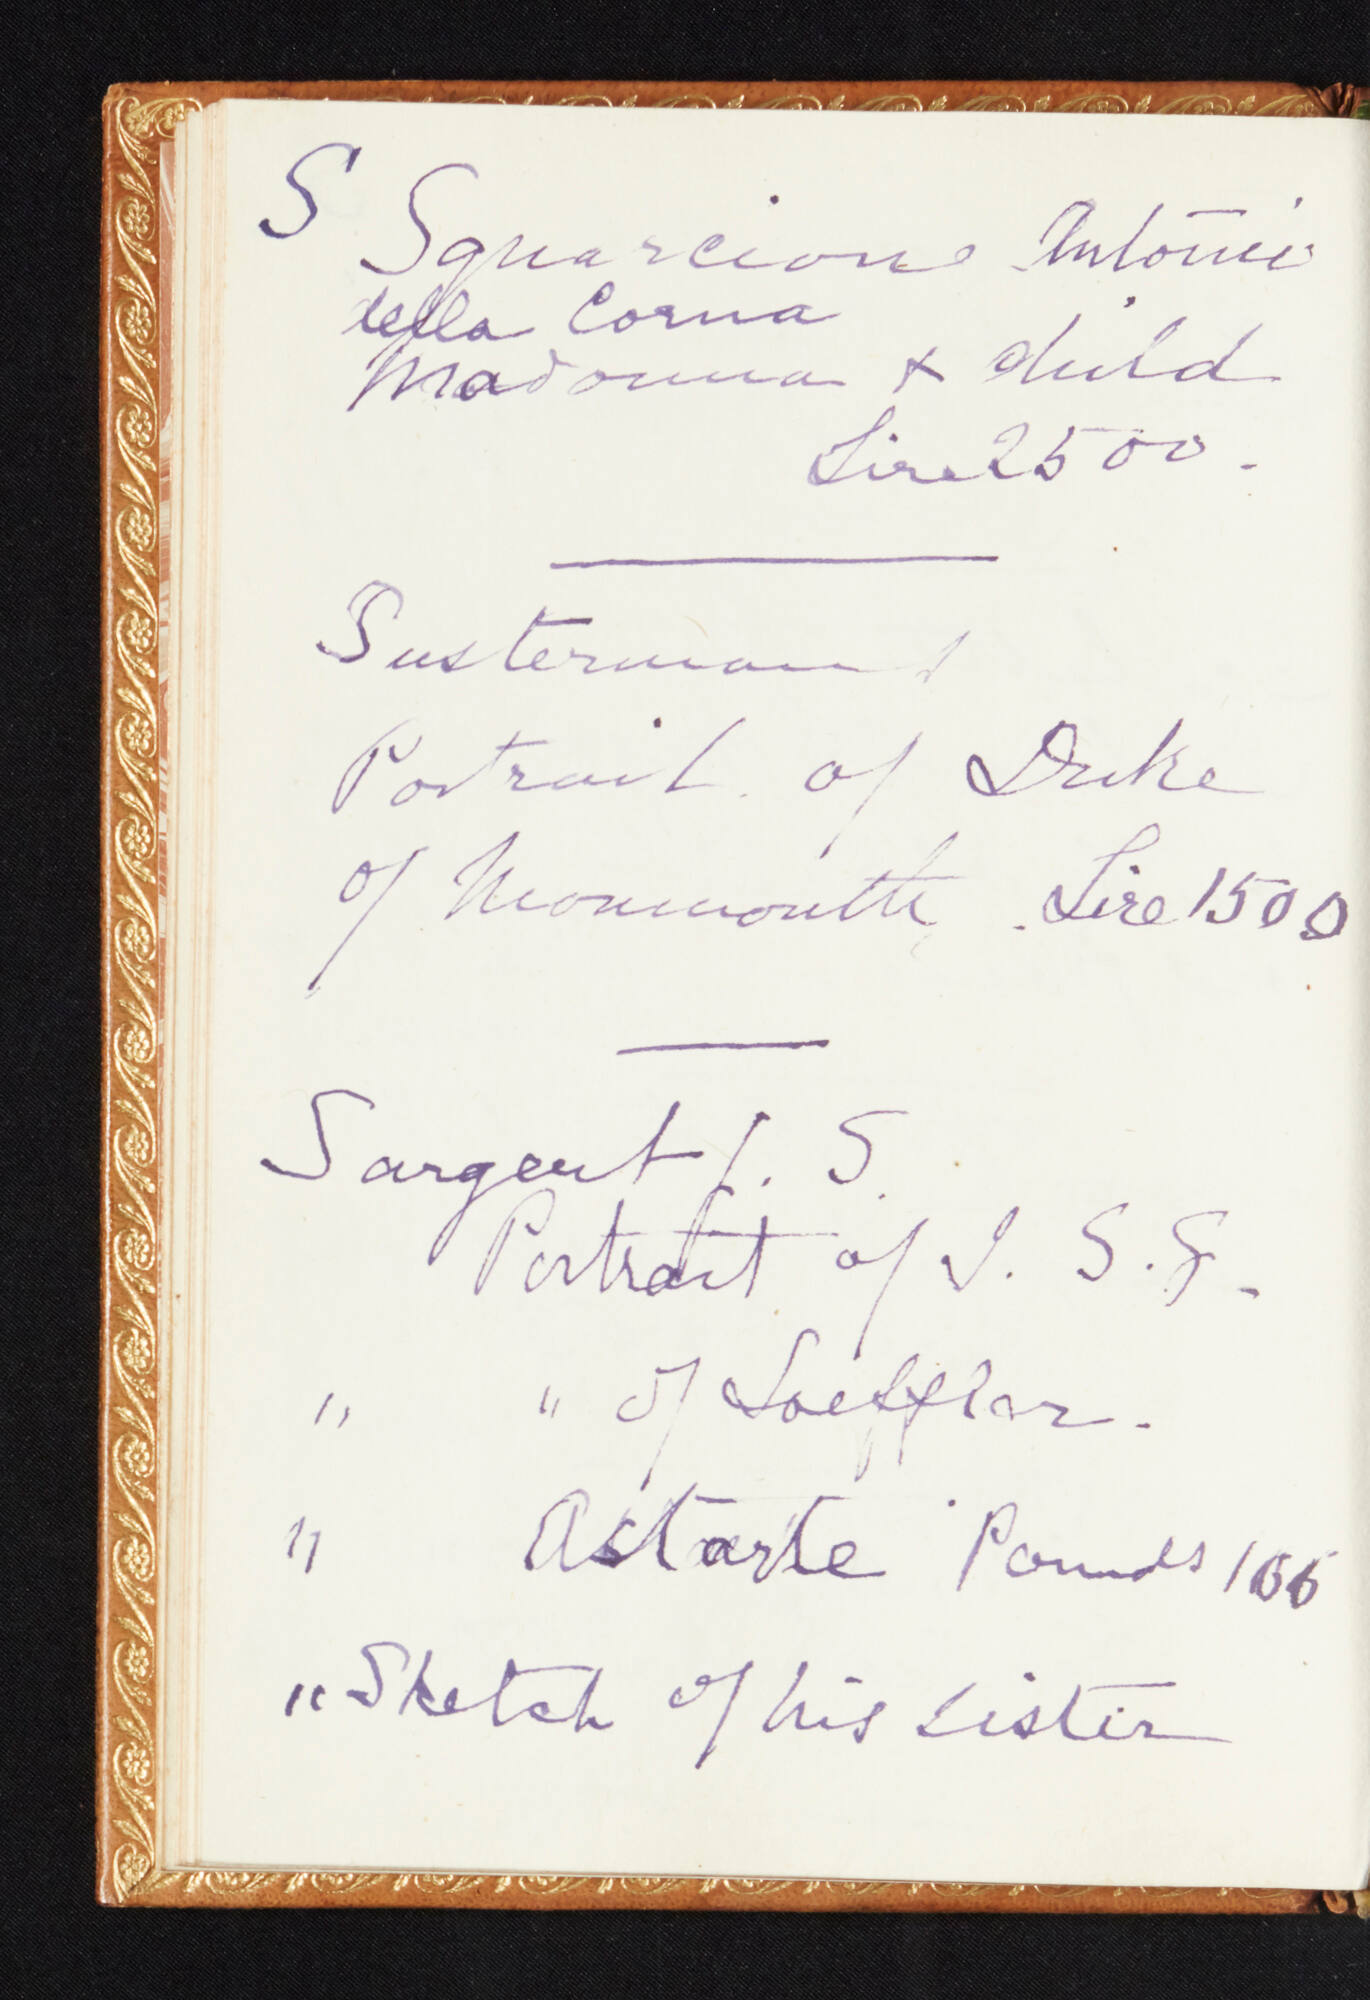 S Squarcione Antonio
della Corna
Madonna + child
Lire 2500.
Sustermans
Portrait of Duke
of Monmouth. Lire 1500
Sargent J. S.
Portrait of I. S. G.
" " of Loeffler.
" Astarte Pounds 166
" Sketch of his sister